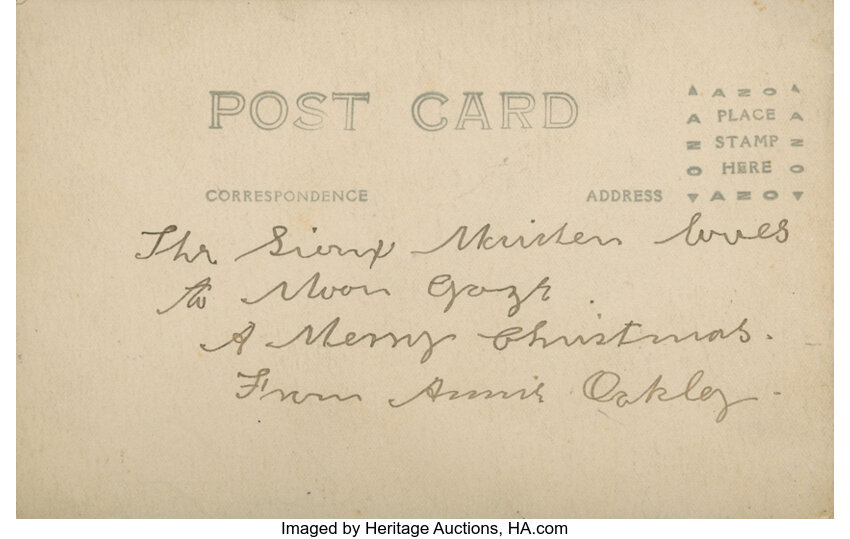 POST CARD
AZO
PLACE
STAMP
HERE
AZO
CORRESPONDENCE
ADDRESS
The Sioux Maiden loves
to Moon Gaze.
A Merry Christmas.
From Annie Oakley.
Imaged by Heritage Auctions, HA.com